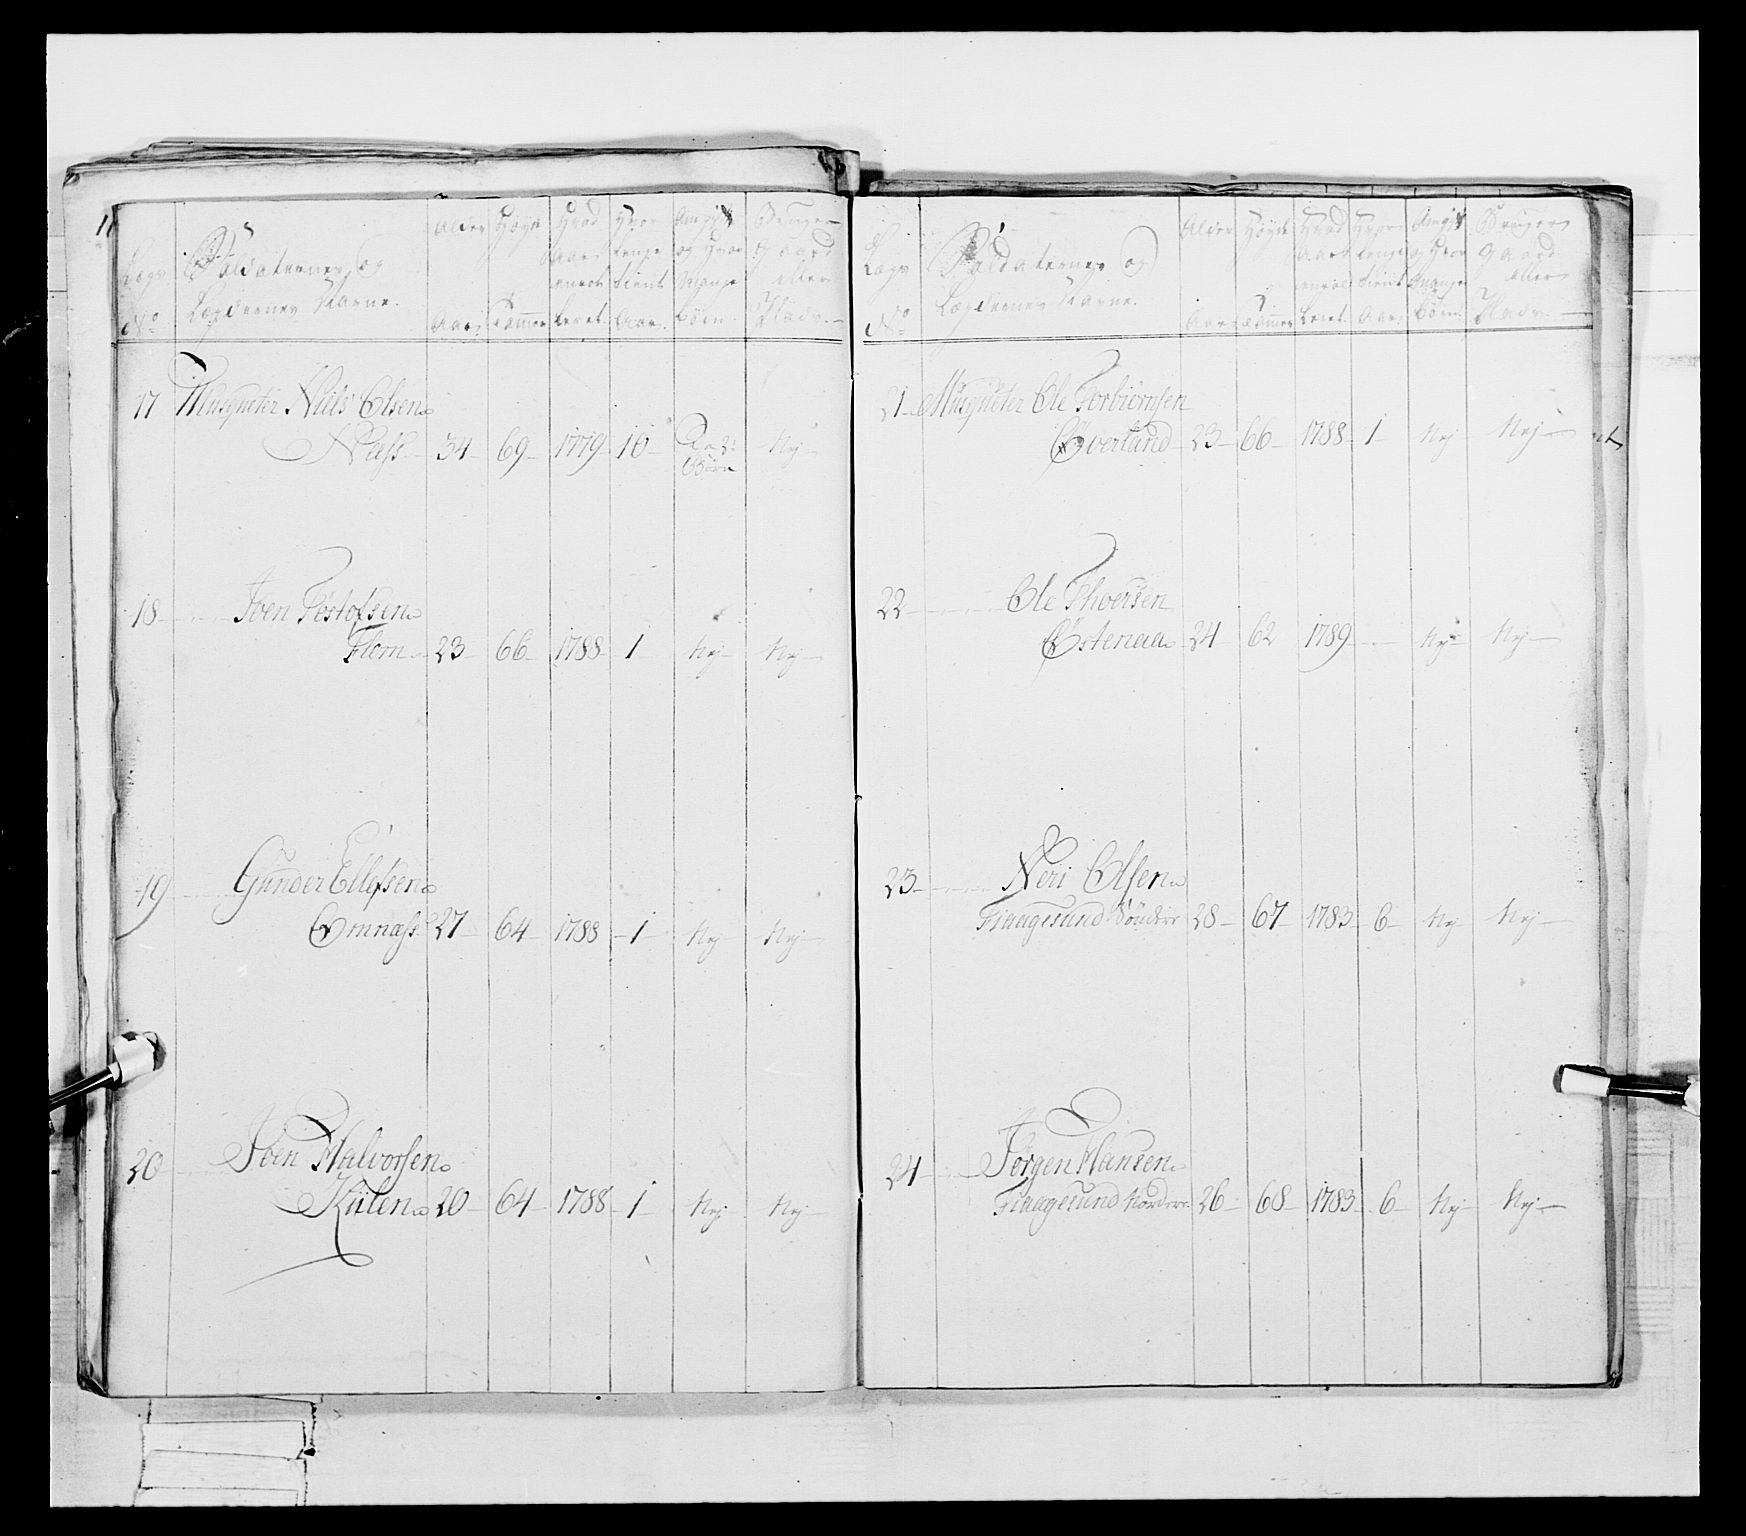 Lægs No
Soldaternes og Lægdernes Navne.
Alder Aar
Høyde Tommer
Hvad Aar enrolleret
Hvor lenge tient Aar
og hvor Mange børn
gaard eller Plads
17 Musqueter Niils Olsen
Næss 34 69 1779 10 Børn Nej
18 Joen Tostofsen
Flom 23 66 1788 1 Nej Nej
19 Gunder Ellefsen
Omnæss 27 64 1788 1 Nej Nej
20 Joen Halvorsen
Kiilen 20 64 1788 1 Nej Nej
Lægs No
Soldaternes og
Lægdernes Navne.
Alder Aar
Høyde Tommer
Hvad Aar
Hvor lenge tient Aar
og hvor Mange børn
Bruger gaard eller Plads
21 Musqueter Ole Torbiørnsen
Øverland 23 66 1788 1 Nej Nej
22 Ole Thoersen
Østenaa 24 62 1789 Nej Nej
23 Neri Olsen
Flaagesund Søndere 28 67 1783 6 Nej Nej
24 Jørgen Hansen
Flaagesund Nordere 26 68 1783 6 Nej Nej